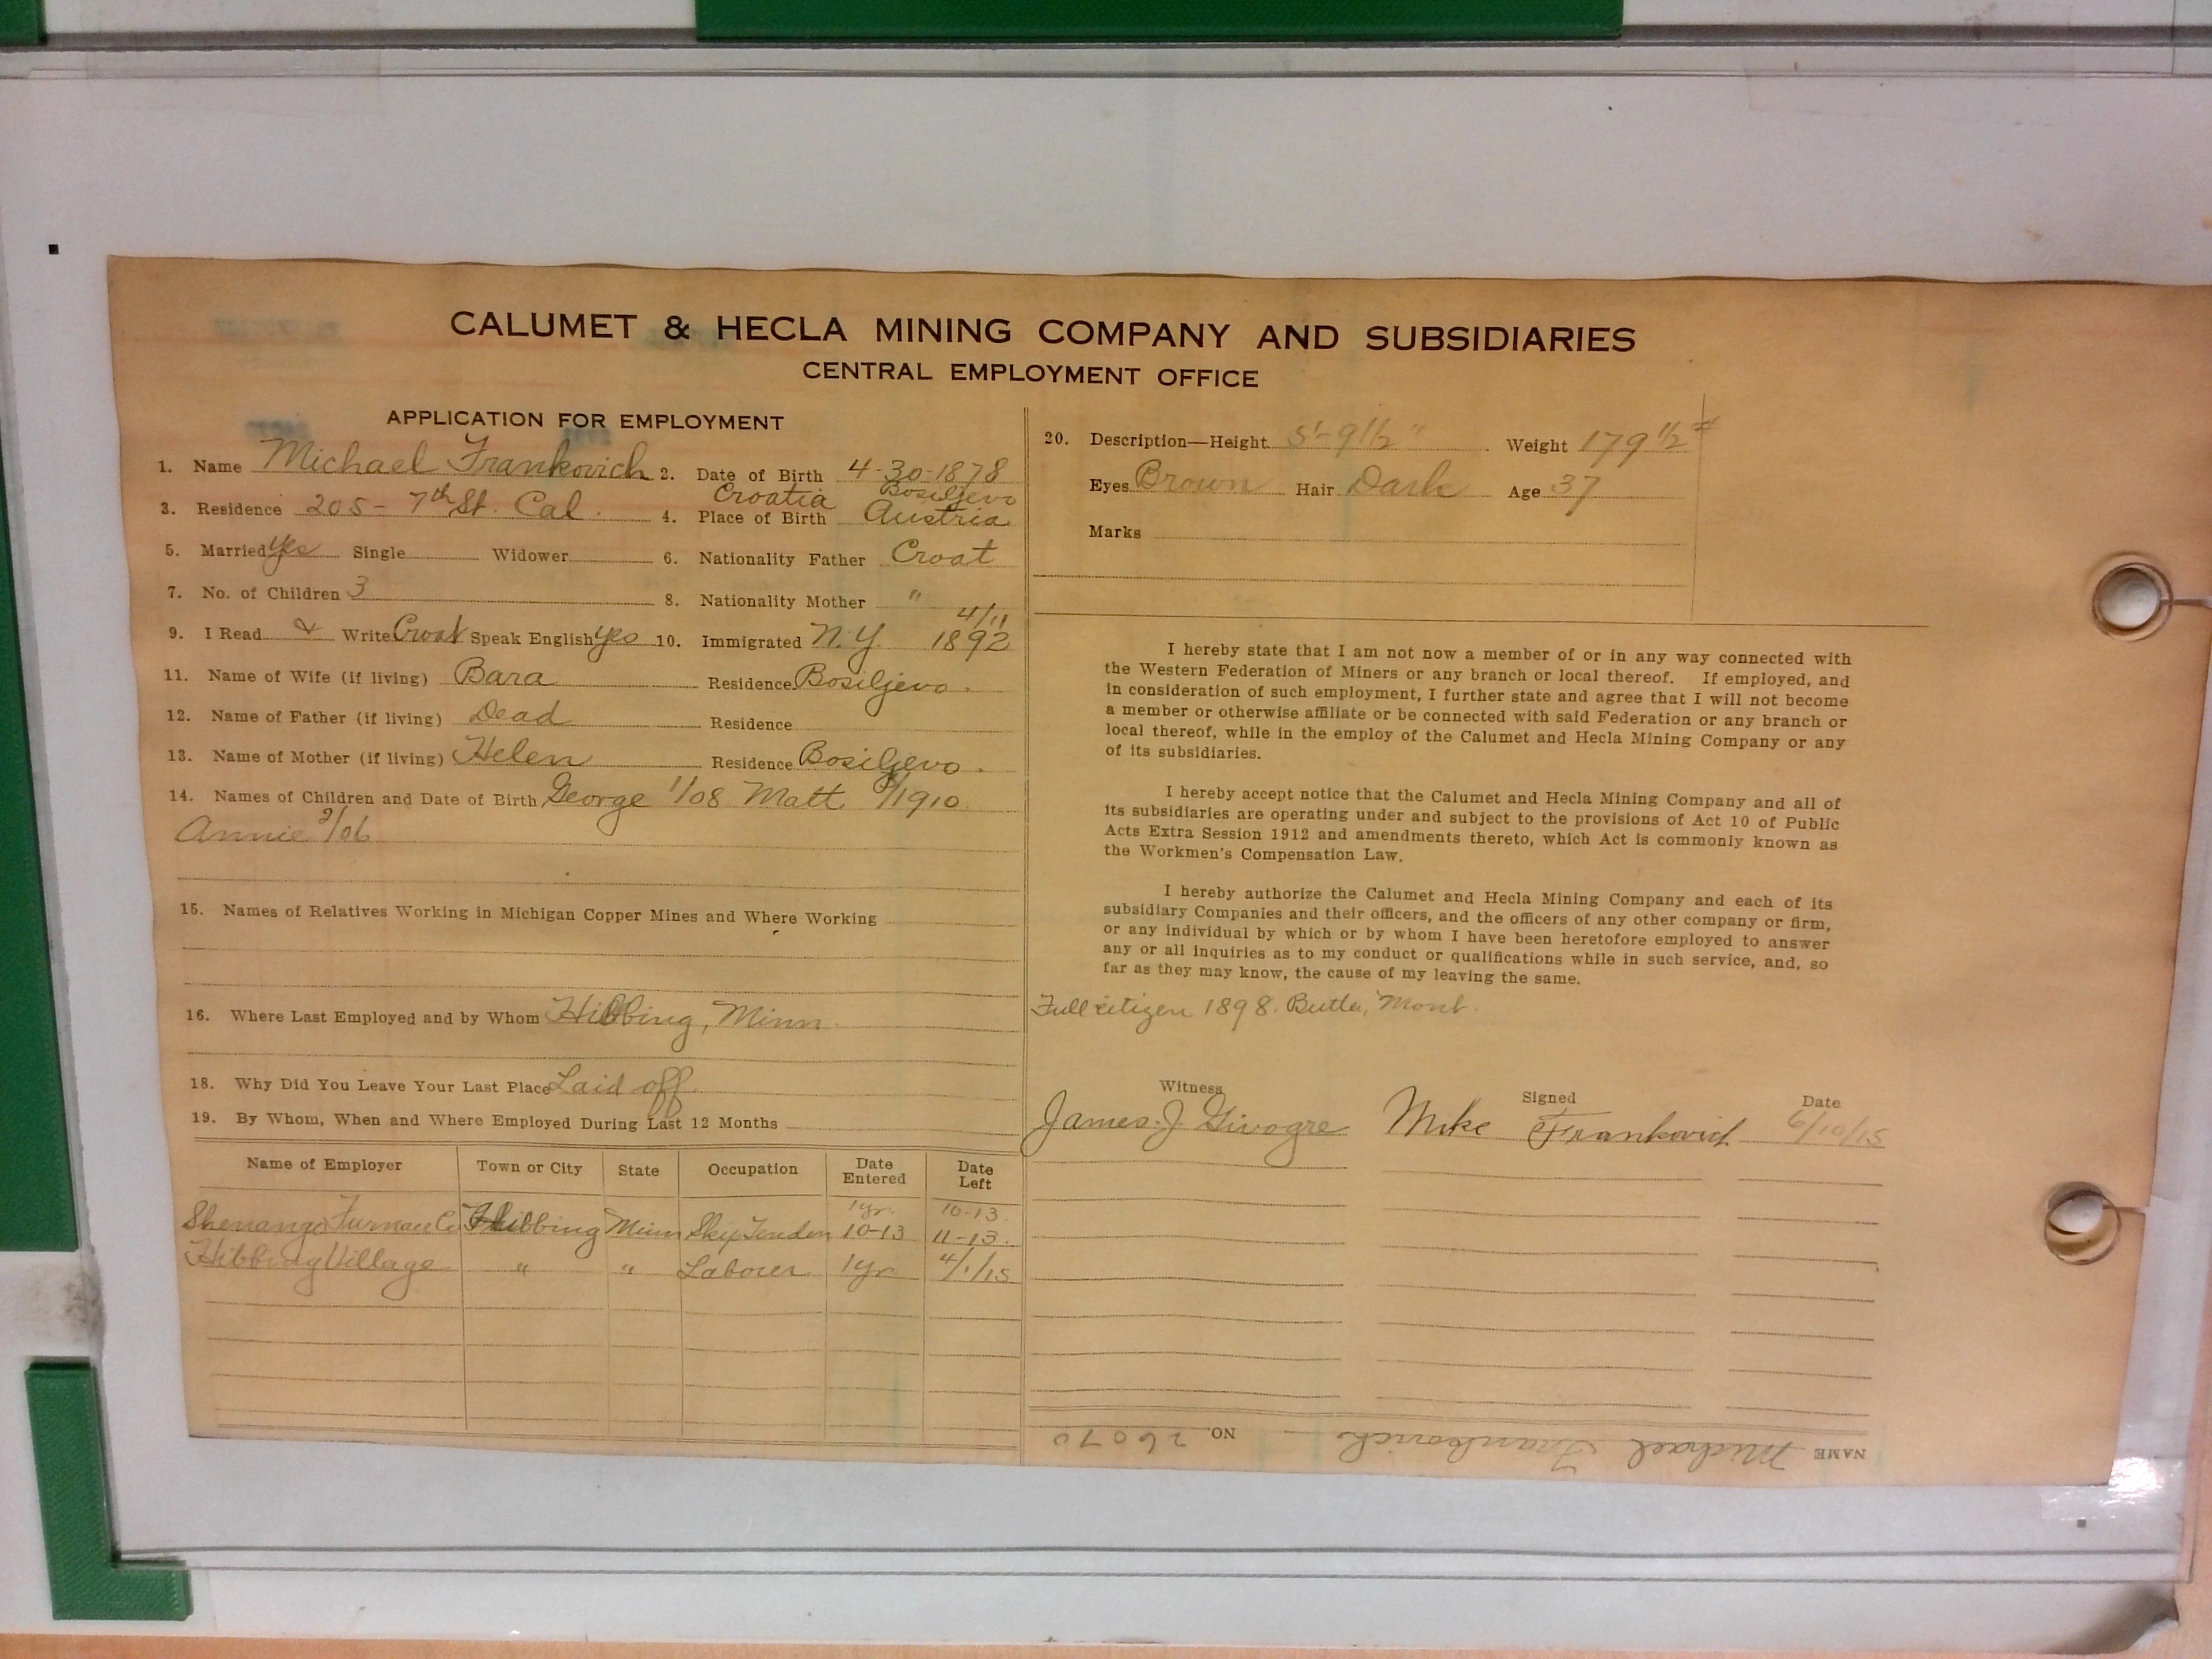 CALUMET & HECLA MINING COMPANY AND SUBSIDIARIES
CENTRAL EMPLOYMENT OFFICE
APPLICATION FOR EMPLOYMENT
1. Name Michael Frankovich 2. Date of Birth 4-30-1878
Croatia Bosiljevo
3. Residence 205 - 7th St. Cal. 4. Place of Birth Austria
5. Married Yes Single Widower 6. Nationality Father Croat
7. No. of Children 3 8. Nationality Mother "
4/11
9. I Read & Write Croat Speak English yes 10. Immigrated N.Y. 1892
11. Name of Wife (if living) Bara Residence Bosiljevo.
12. Name of Father (if living) Dead Residence
13. Name of Mother (if living) Helen Residence Bosiljevo.
14. Names of Children and Date of Birth George 1/08 Matt 8/1910
Annie 2/06
15. Names of Relatives Working in Michigan Copper Mines and Where Working
16. Where Last Employed and by Whom Hibbing, Minn.
18. Why Did You Leave Your Last Place Laid off
19. By Whom, When and Where Employed During Last 12 Months
Name of Employer Town or City State Occupation Date Entered Date Left
1yr. 10-13.
Shenango Furnace Co Hibbing Minn Skip Tender 10-13 11-13.
Hibbing Village " " Laborer 1yr 4/1/15
20. Description—Height 5'-9 1/2" Weight 179 1/2 #
Eyes Brown Hair Dark Age 37
Marks
I hereby state that I am not now a member of or in any way connected with
the Western Federation of Miners or any branch or local thereof. If employed, and
in consideration of such employment, I further state and agree that I will not become
a member or otherwise affiliate or be connected with said Federation or any branch or
local thereof, while in the employ of the Calumet and Hecla Mining Company or any
of its subsidiaries.
I hereby accept notice that the Calumet and Hecla Mining Company and all of
its subsidiaries are operating under and subject to the provisions of Act 10 of Public
Acts Extra Session 1912 and amendments thereto, which Act is commonly known as
the Workmen's Compensation Law.
I hereby authorize the Calumet and Hecla Mining Company and each of its
subsidiary Companies and their officers, and the officers of any other company or firm,
or any individual by which or by whom I have been heretofore employed to answer
any or all inquiries as to my conduct or qualifications while in such service, and, so
far as they may know, the cause of my leaving the same.
Full citizen 1898. Butte, Mont.
Witness Signed Date
James. J. Givogre Mike Frankovich 6/10/15
NAME Michael Frankovich NO. 26070